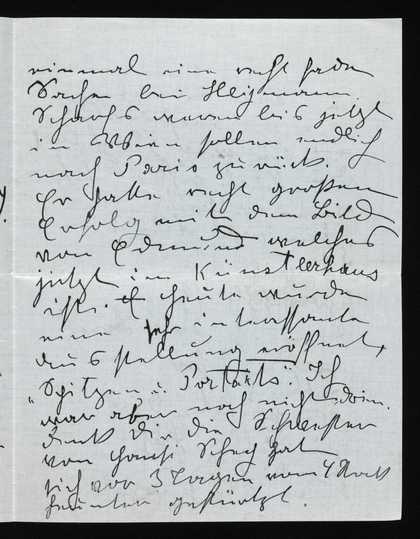 einmal eine recht fade
Sachen bei Heymann.
Schachs waren bis jetzt
in Wien sollen endlich
nach Paris zurück.
Er hatte recht großen
Erfolg mit dem Bild
von Edmund welches
jetzt im Künstlerhaus
ist. heute wurde
eine sehr interessante
Ausstellung eröffnet,
„Spitzen u. Portraits". Ich
war aber noch nicht drin.
Denk Dir die Schwester
von Hansi Schey hat
sich vor 3 Tagen vom 4 Stock
herunter gestürzt.